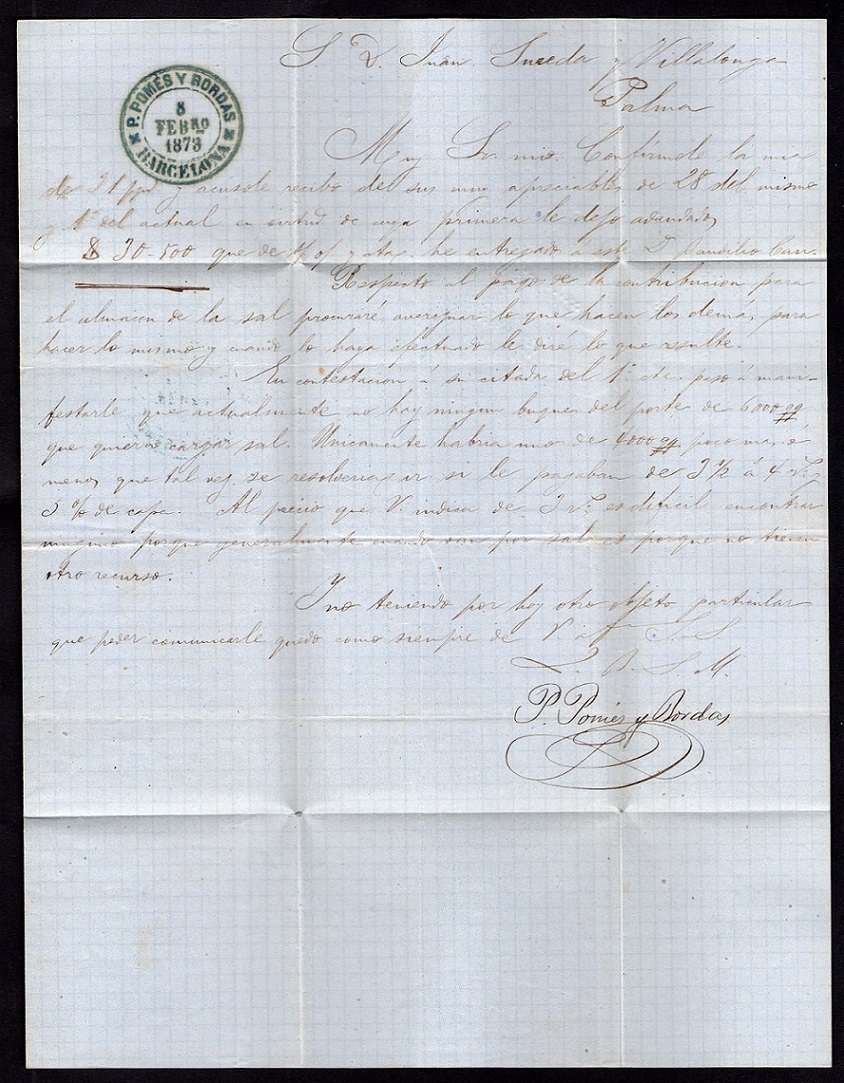 S. D. Juan Sureda y Villalonga
Palma
P. POMÉS Y BORDAS
5
FEBRO
1873
BARCELONA
Muy Sr. mio. Confírmole la mia
de 31 ppdo y acusole recibo del sus muy apreciables de 28 del mismo
y 1º del actual en virtud de cuya primera le dejo adeudado,
$ 30-500 que de s/ of y cta. he entregado a este D.
Respecto al pago de la contribucion para
el almacen de la sal procuraré averiguar lo que hacen los demás, para
hacer lo mismo y cuando lo haya efectuado le diré lo que resulte.
En contestacion á su citada del 1º cte. paso á mani-
festarle que actualmente no hay ningun buque del porte de 6000 qq
que quiera cargar sal. Unicamente habria uno de 4000 qq poco mas ó
menos que tal vez se resolveria ir si le pagaban de 3 ½ á 4 rs. y
5 % de capa. Al precio que V. indica de 3 rs. es dificil encontrar
ninguno porque generalmente cuando van por sal es porque no tienen
otro recurso.
Y no teniendo por hoy otro objeto particular
que poder comunicarle quedo como siempre de V. aff S. S.
Q. B. S. M.
P. Pomés y Bordas